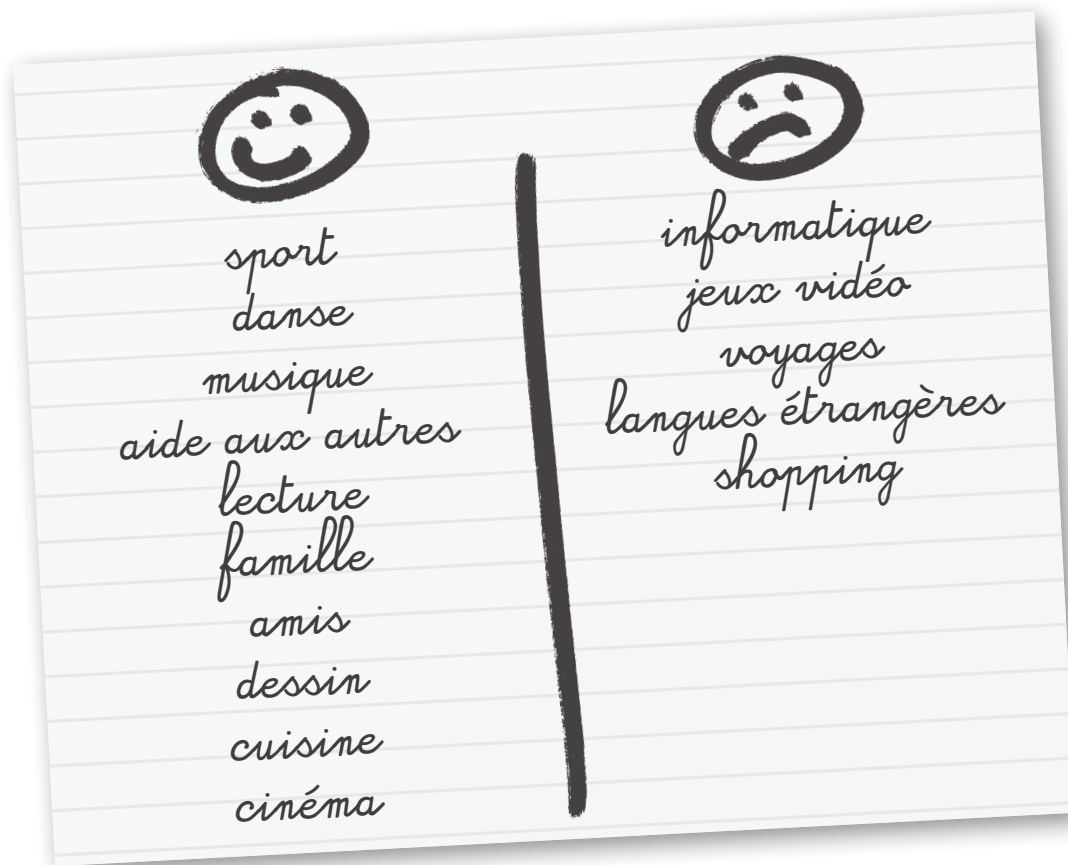 sport
danse
musique
aide aux autres
lecture
famille
amis
dessin
cuisine
cinéma
informatique
jeux vidéo
voyages
langues étrangères
shopping